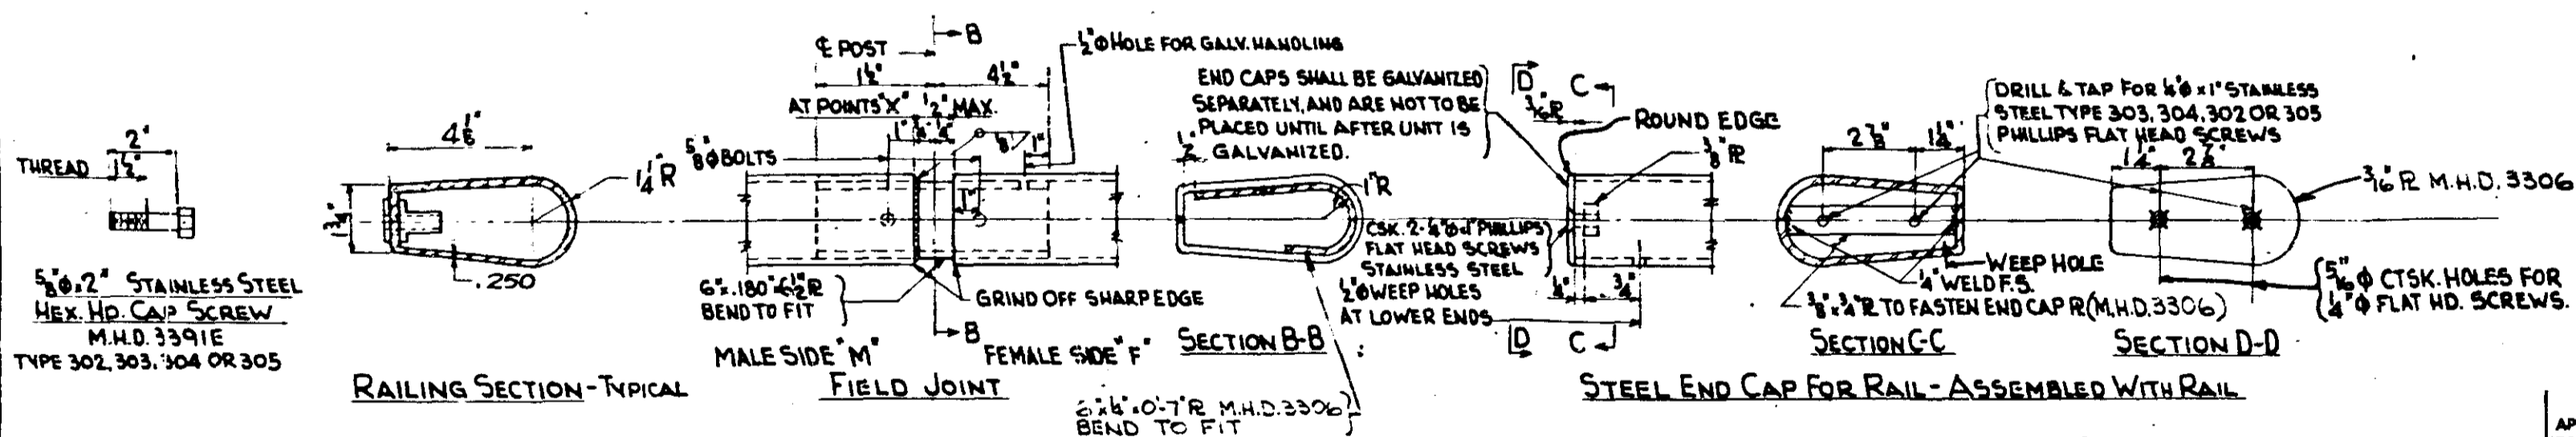 2"
THREAD
1½"
⅝"ϕ x 2" STAINLESS STEEL
HEX. HD. CAP SCREW
M.H.D. 3391E
TYPE 302, 303, 304 OR 305
4⅛"
1¾"
1¼" R
.250
RAILING SECTION-TYPICAL
℄ POST
B
1½"
4½"
AT POINTS "X"
½" MAX.
1"
1"
⅝"ϕ BOLTS
1"
½"ϕ HOLE FOR GALV. HANDLING
BEND TO FIT
GRIND OFF SHARP EDGE
B
MALE SIDE "M"
FEMALE SIDE "F"
FIELD JOINT
END CAPS SHALL BE GALVANIZED
SEPARATELY, AND ARE NOT TO BE
PLACED UNTIL AFTER UNIT IS
GALVANIZED.
1"R
SECTION B-B
6"x¼"x0'-7" ⅊ M.H.D. 3306
BEND TO FIT
D
C
3/16 ⅊
ROUND EDGE
⅜" ⅊
CSK. 2-¼"ϕ x 1" PHILLIPS
FLAT HEAD SCREWS
STAINLESS STEEL
½"ϕ WEEP HOLES
AT LOWER ENDS
¼"
¾"
D
C
DRILL & TAP FOR ¼"ϕ x 1" STAINLESS
STEEL TYPE 303, 304, 302 OR 305
PHILLIPS FLAT HEAD SCREWS
2⅞"
1¼"
WEEP HOLE
¼" WELD F.S.
⅜"x¾" ⅊ TO FASTEN END CAP ⅊ (M.H.D. 3306)
SECTION C-C
1¼"
2⅞"
3/16" ⅊ M.H.D. 3306
5/16" ϕ CTSK. HOLES FOR
¼" ϕ FLAT HD. SCREWS.
SECTION D-D
STEEL END CAP FOR RAIL-ASSEMBLED WITH RAIL